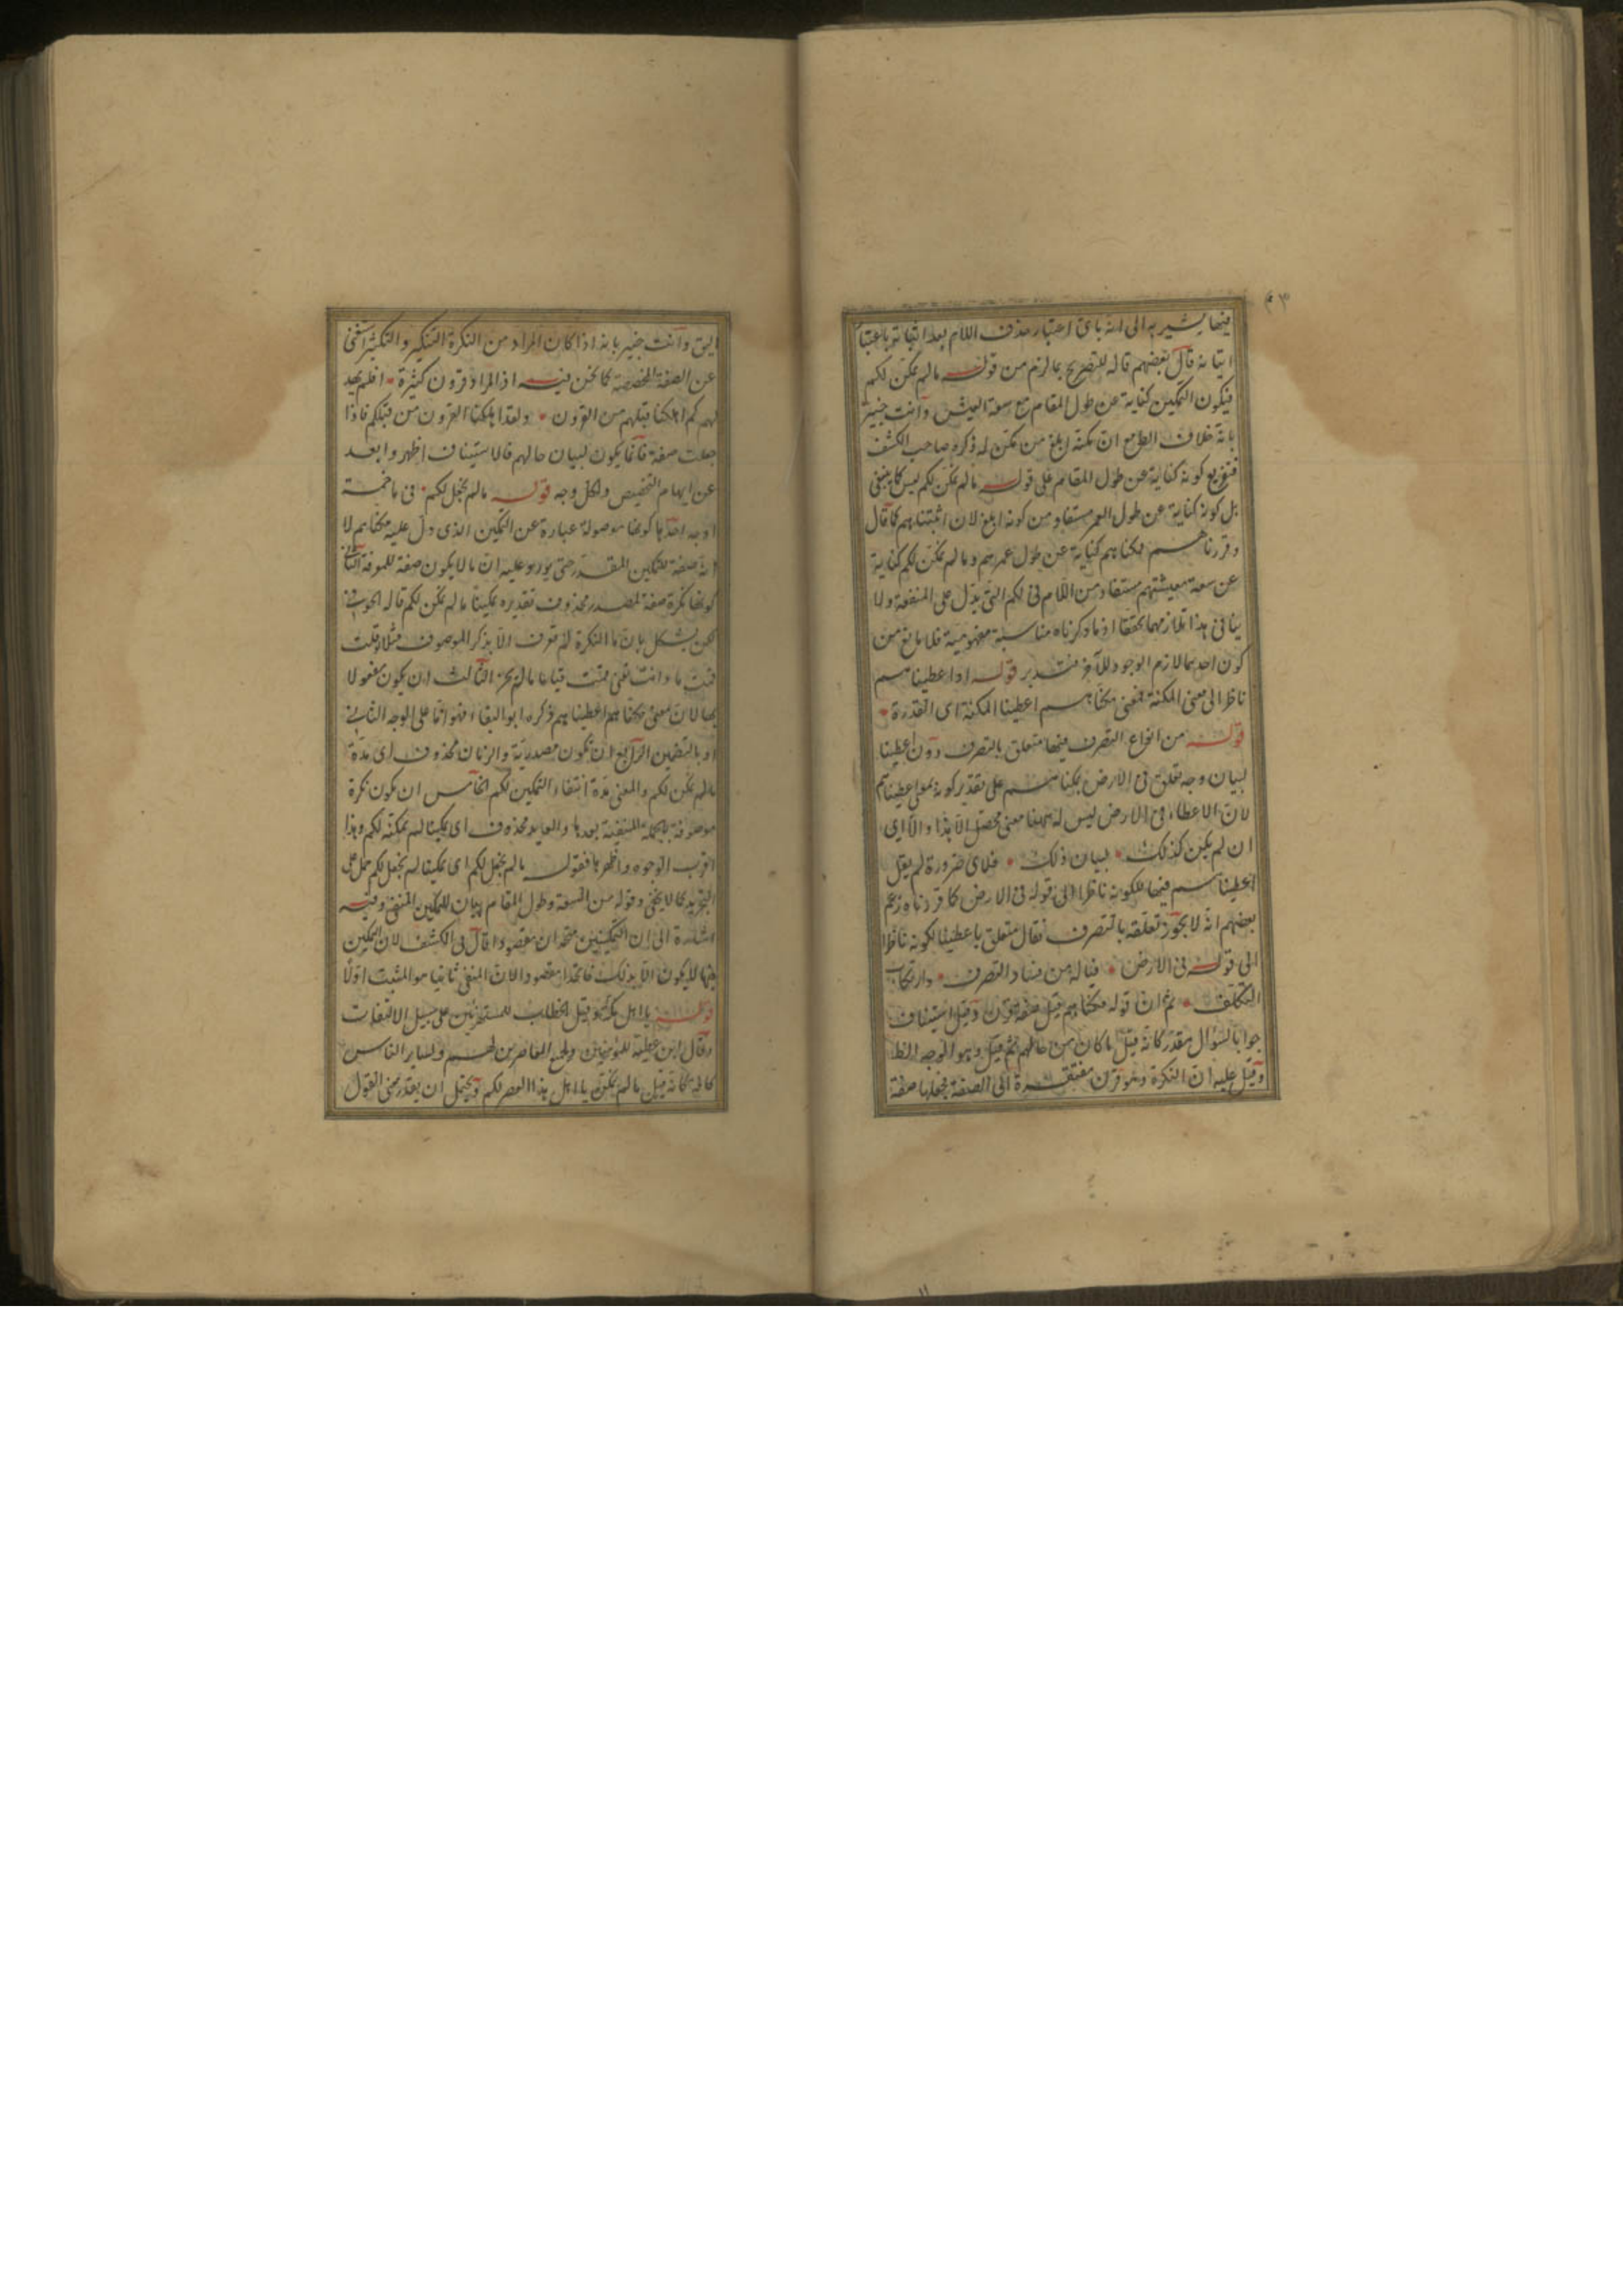 فيها يشير به الى انه باى اعتبار حذف اللام بعد اثباته وباعتبار
اثباته قال بعضهم قاله للتصريح بما لزم من قوله ما لم نمكن لكم
فيكون التمكين كناية عن طول المقام مع سعة العيش وانت خبير
بانه خلاف الطبع ان مكنه ابلغ من مكن له ذكره صاحب الكشف
فتفريع كونه كناية عن طول المقام على قوله ما لم نمكن لكم ليس كما ينبغى
بل كونه كناية عن طول العمر مستفاد من كونه ابلغ لان اثبتناهم كما قال
وقررناهم مكناهم كناية عن طول عمرهم وما لم نمكن لكم كناية
عن سعة معيشتهم مستفاد من اللام فى لكم التى يدل على المنفعة ولا
ينافى هذا تلازمهما تحققا اذ ما ذكرناه مناسبة مفهومية فلا مانع من
كون احدهما لازم الوجود للآخر فتدبر قوله او اعطيناهم
ناظر الى معنى المكنة فمعنى مكناهم اعطينا المكنة اى القدرة
قوله من انواع التصرف فيها متعلق بالتصرف دون اعطينا
لبيان وجه تعلق فى الارض بمكناهم على تقدير كونه بمعنى اعطيناهم
لان الاعطاء فى الارض ليس له ههنا معنى محصل الا بذا والا اى
ان لم يكن كذلك لبيان ذلك فلاى ضرورة لم يقل
اعطيناهم فيها لكونه ناظرا الى قوله فى الارض كما قررناه زعم
بعضهم انه لا يجوز تعلقه بالتصرف فقال متعلق باعطينا لكونه ناظرا
الى قوله فى الارض فياله من فساد التصرف وارتكاب
التكلف ثم ان قوله مكناهم قيل صفة قرن وقيل استيناف
جوابا لسؤال مقدر كانه قيل ما كان من حالهم فقيل وهو الوجه الظا
وقيل عليه ان النكرة وهو قرن مفتقرة الى الصفة فجعلها صفة
اليق وانت خبير بانه اذا كان المراد من النكرة التنكير والتكثير استغنى
عن الصفة المخصصة كما نحن فيه اذ المراد قرون كثيرة افلم يهد
لهم كم اهلكنا قبلهم من القرون ولقد اهلكنا القرون من قبلكم فاذا
جعلت صفة فانما يكون لبيان حالهم فالاستيناف اظهر وابعد
عن ايهام التخصيص ولكل وجه قوله ما لم نجعل لكم فى ما خمسة
اوجه احدها كونها موصولة عبارة عن التمكين الذى دل عليه مكناهم لا
انه صفة للتمكين المقدر حتى يورد عليه ان ما لا يكون صفة للمعرفة الثانى
كونها نكرة صفة لمصدر محذوف تقديره تمكينا ما لم نمكن لكم قاله الحوفى
لكن يشكل بان ما النكرة الا بذكر الموصوف فمثلا لو قلت
قمت ما وانت تعنى قمت قياما ما لم يجز الثالث ان يكون مفعولا
بها لان معنى مكناهم اعطيناهم ذكره ابو البقاء فهو اما على الوجه الثانى
او بالتضمين الرابع ان تكون مصدرية والزمان محذوف اى مدة
ما لم نمكن لكم والمعنى مدة انتفاء التمكين لكم الخامس ان تكون نكرة
موصوفة بالجملة المنفية بعدها والعايد محذوف اى تمكينا لم نمكنه لكم وهذا
اقرب الوجوه واظهرها فقوله ما لم نجعل لكم اى تمكينا لم نجعل لكم حمل على
التجريد كما لا يخفى وقوله من السعة وطول المقام بيان للتمكين المنفى وفيه
اشارة الى ان التمكينين متحدان مقصودا قال فى الكشف لان التمكين
فيها لا يكون الا بذلك فاتحدا مقصودا لان المنفى ثانيا هو المثبت اولا
قوله يا اهل مكة وقيل الخطاب للمستهزئين على سبيل الالتفات
وقال ابن عطية للمؤمنين ولجميع المعاصرين لهم ولساير الناس
كافة كانه قيل ما لم نمكن يا اهل هذا العصر لكم ويحتمل ان يقدر معنى القول